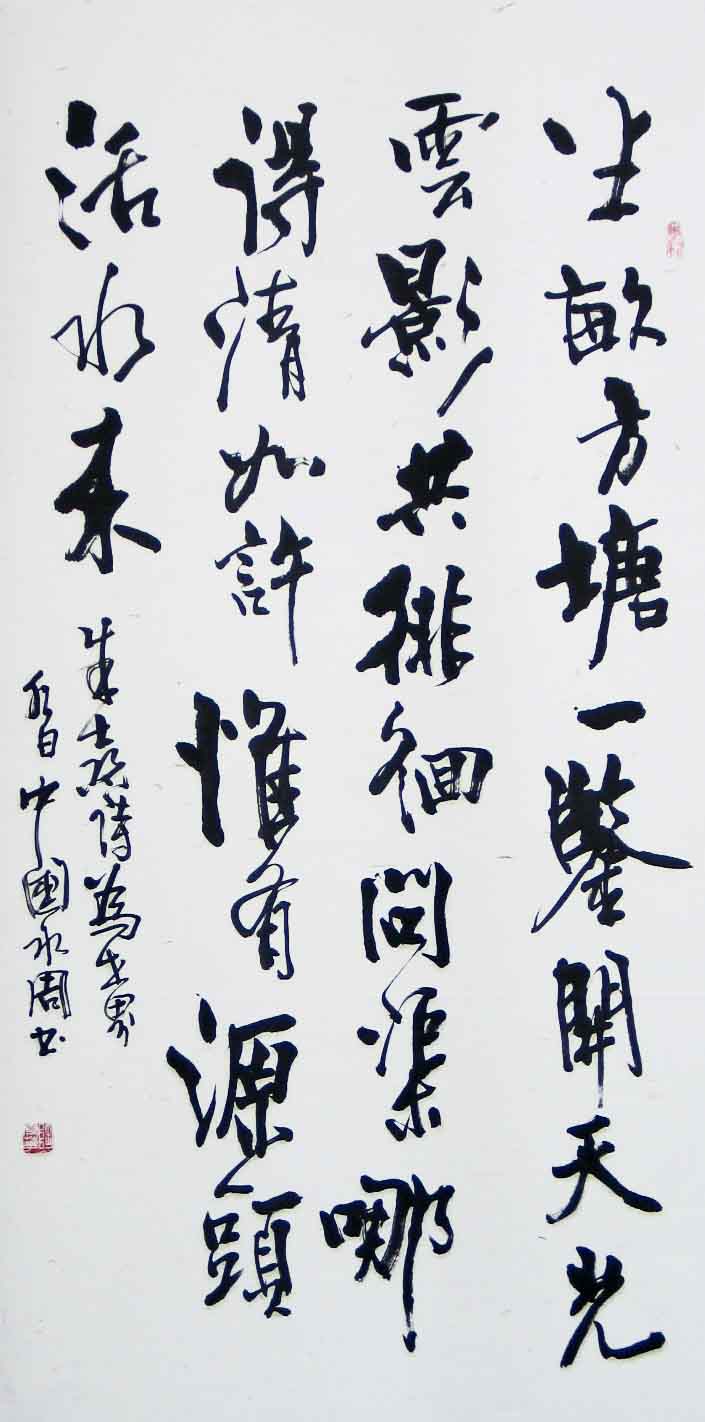 半畝方塘一鑒開天光
雲影共徘徊問渠哪
得清如許惟有源頭
活水来
朱熹詩為世界
水日中國水周书